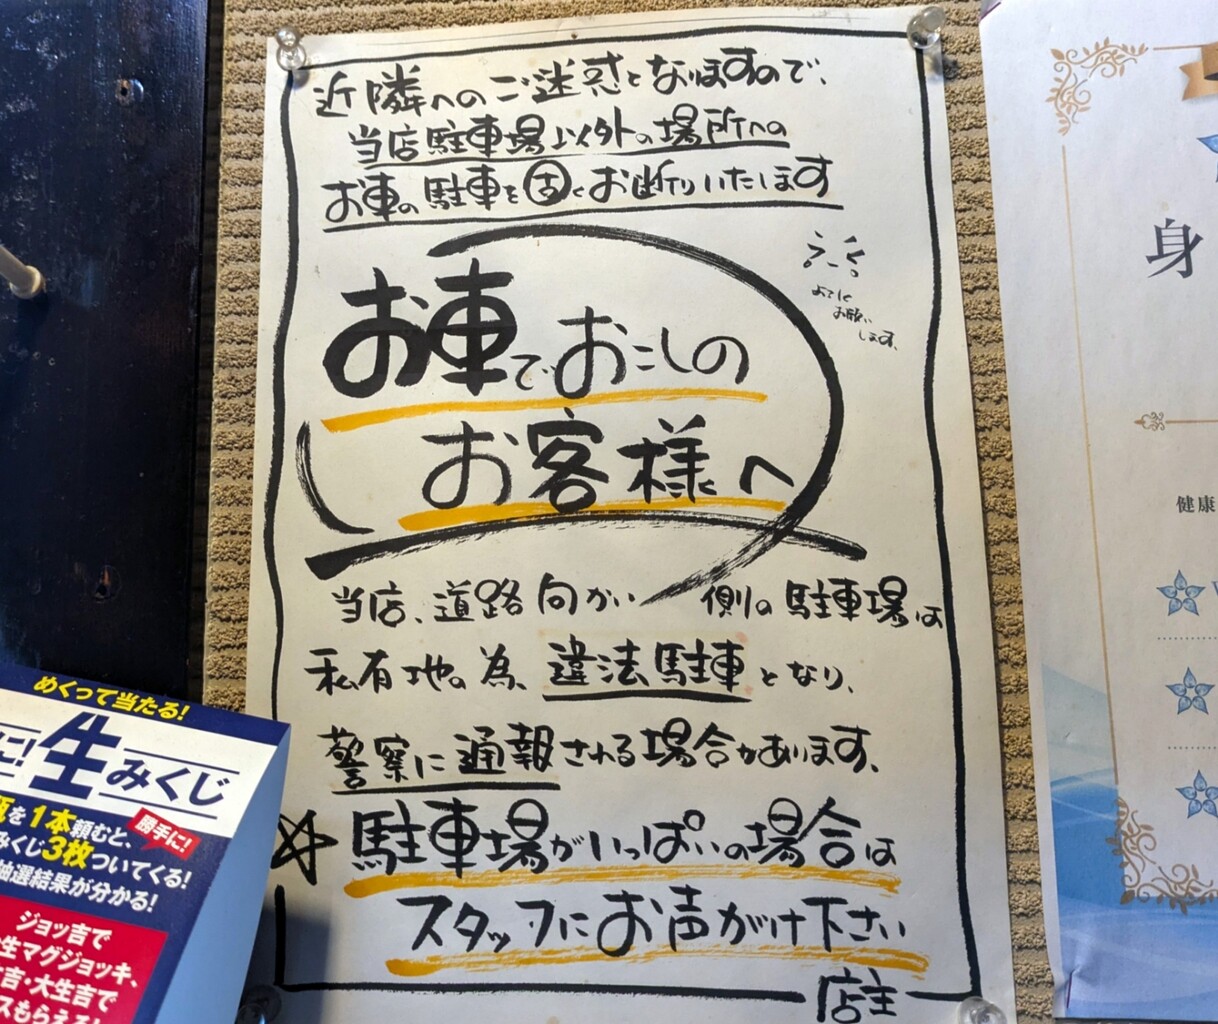 近隣へのご迷惑となりますので、
当店駐車場以外の場所への
お車の駐車を固くお断りいたします
お車でおこしの
お客様へ
お願い
します。
当店、道路向かい 側の駐車場は
私有地の為、違法駐車となり、
警察に通報される場合があります、
☆駐車場がいっぱいの場合は
スタッフにお声がけ下さい
店主
めくって当たる!
に!生みくじ
を1本頼むと、
勝手に!
みくじ3枚ついてくる!
抽選結果が分かる!
ジョッ吉で
生マグジョッキ、
吉・大生吉で
スもらえる!
身
健康